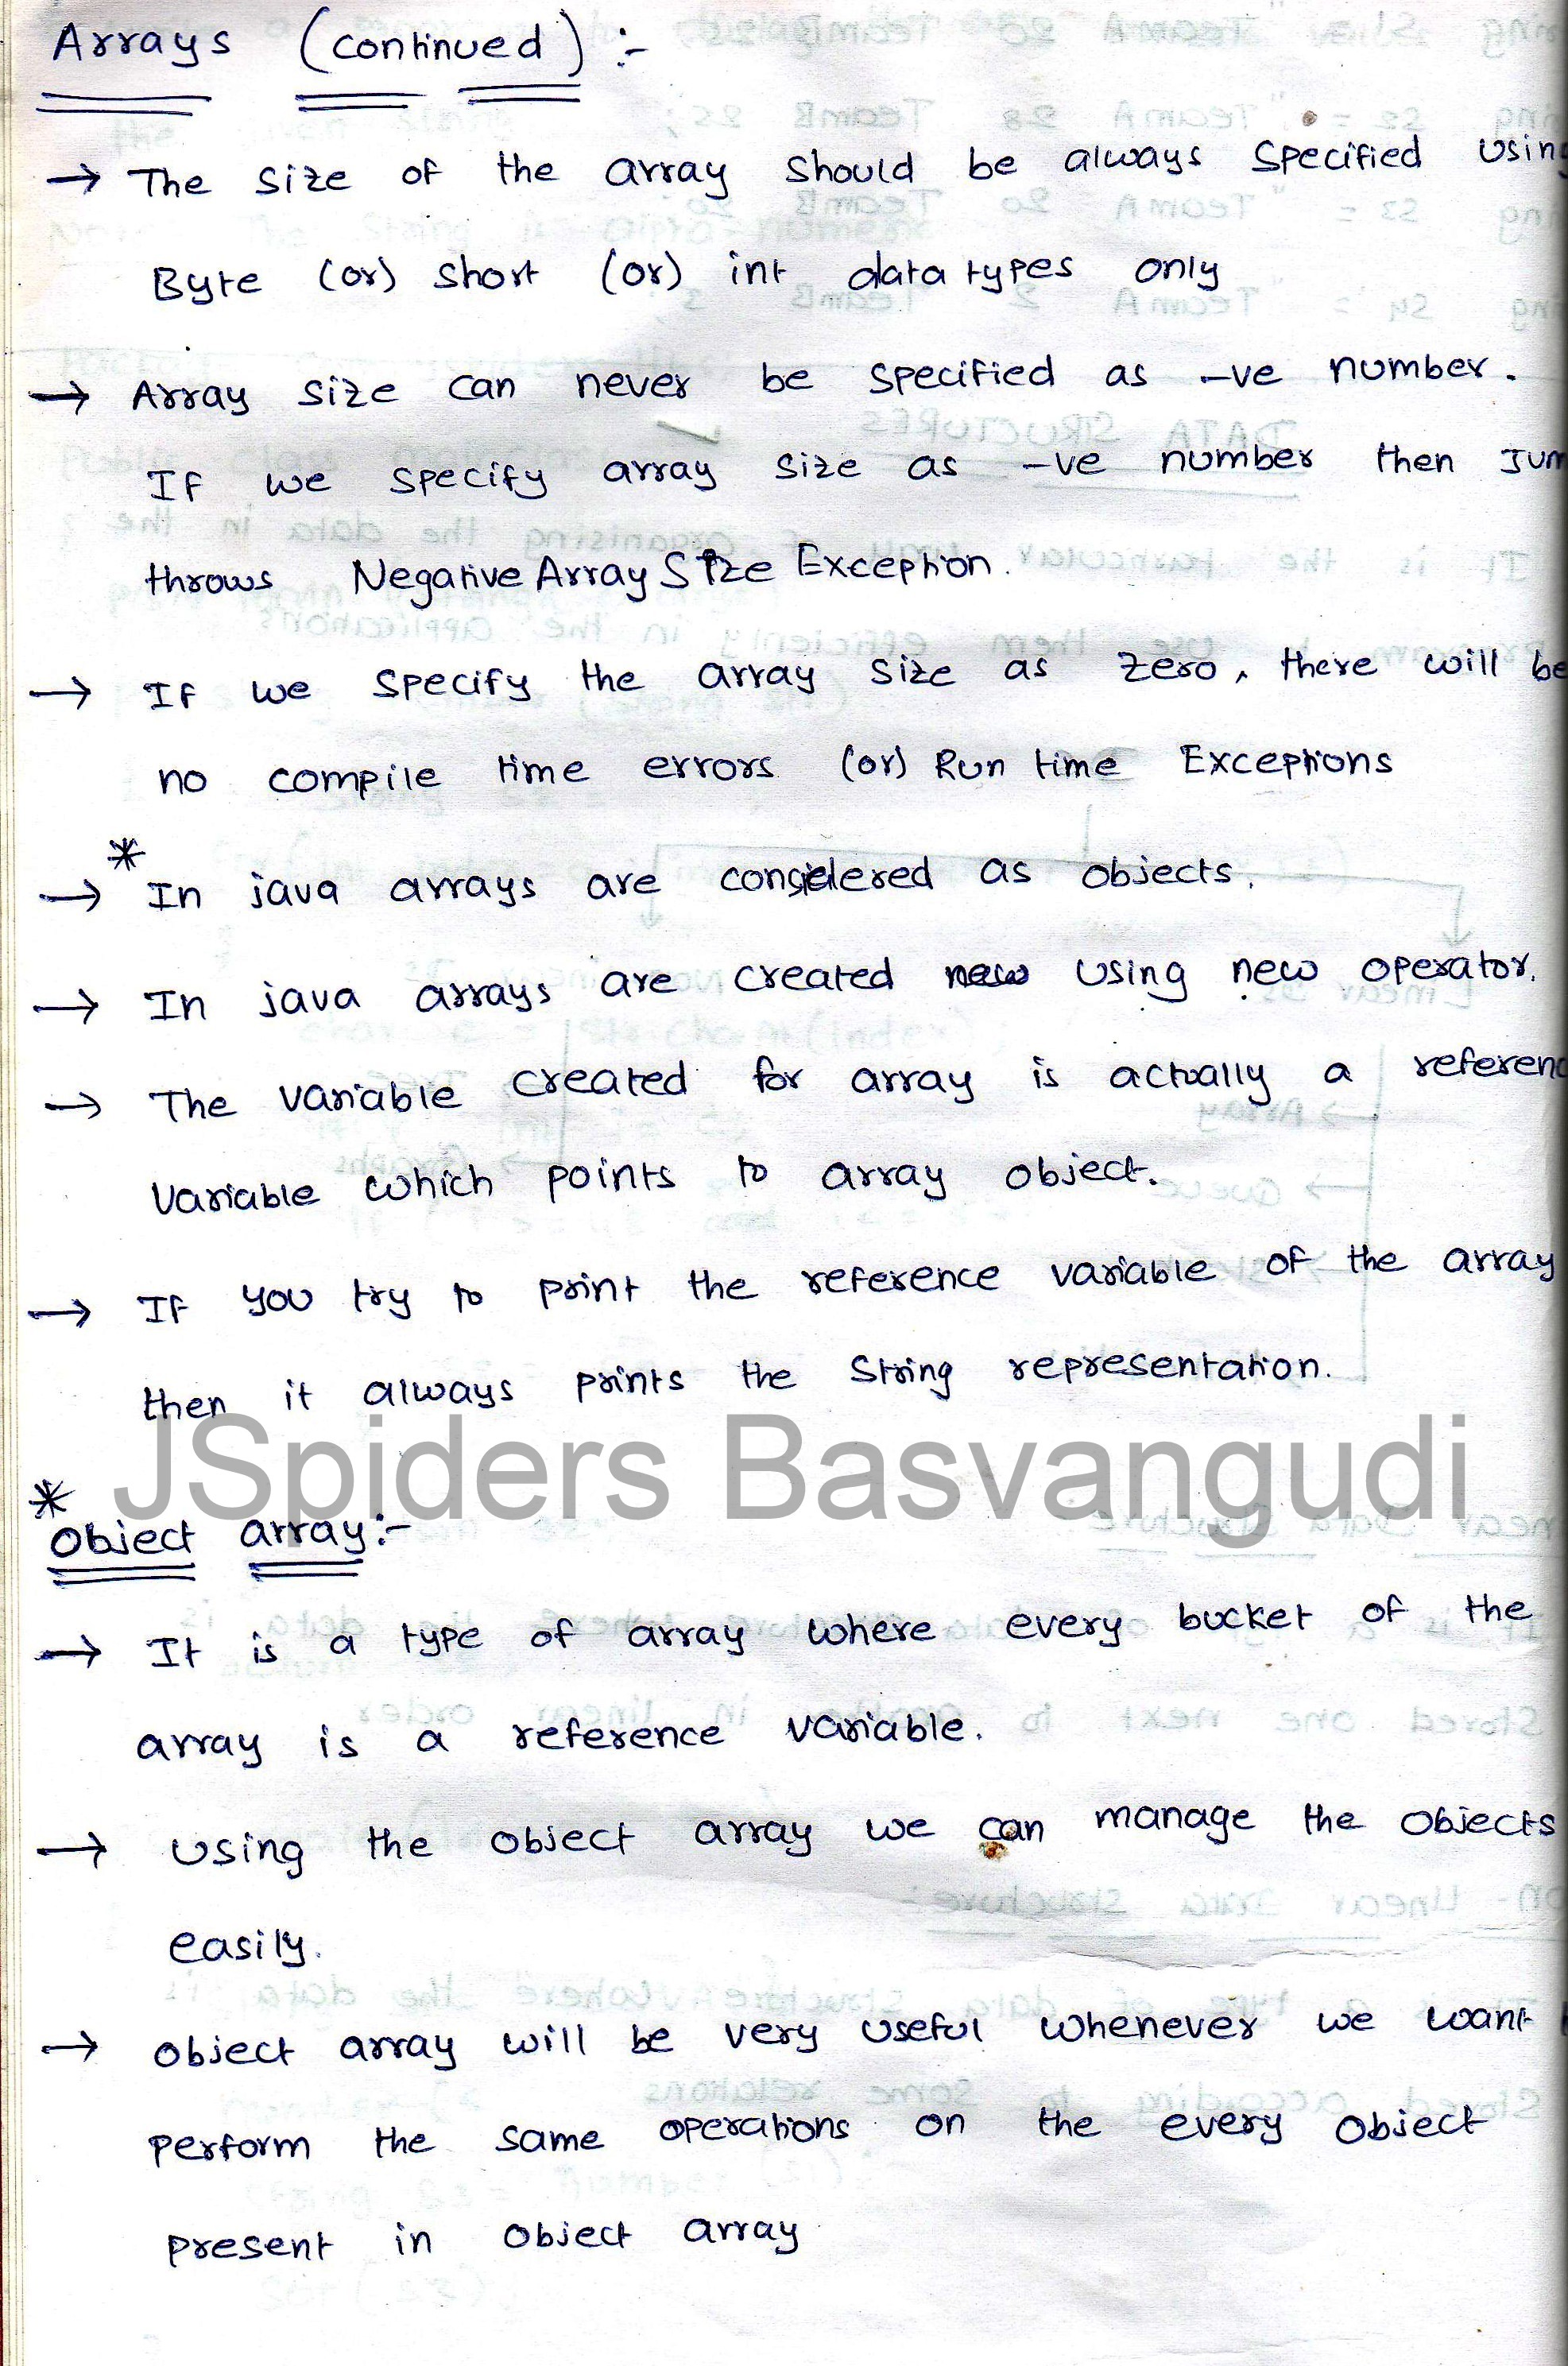 Arrays (continued) :-
→ The size of the array should be always specified using
Byte (or) short (or) int data types only
→ Array size can never be specified as -ve number.
If we specify array size as -ve number then
throws NegativeArraySizeException.
→ If we specify the array size as zero, there will be
no compile time errors (or) Run time Exceptions
*
→ In java arrays are considered as objects.
→ In java arrays are created using new operator.
→ The variable created for array is actually a referenc
variable which points to array object.
→ If you try to print the reference variable of the array
then it always prints the String representation.
JSpiders Basvangudi
*
Object array:-
→ It is a type of array where every bucket of the
array is a reference variable.
→ Using the object array we can manage the objects
easily.
→ Object array will be very useful whenever we want
perform the same operations on the every object
present in object array